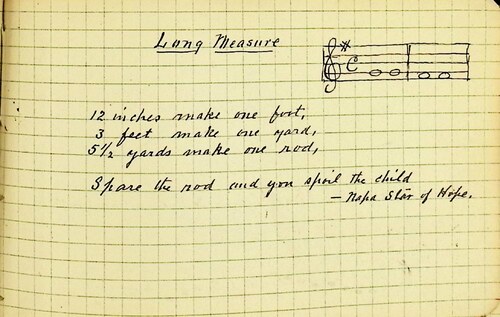 Long Measure
12 inches make one foot,
3 feet make one yard,
5½ yards make one rod,
Spare the rod and you spoil the child
— Napa Star of Hope.